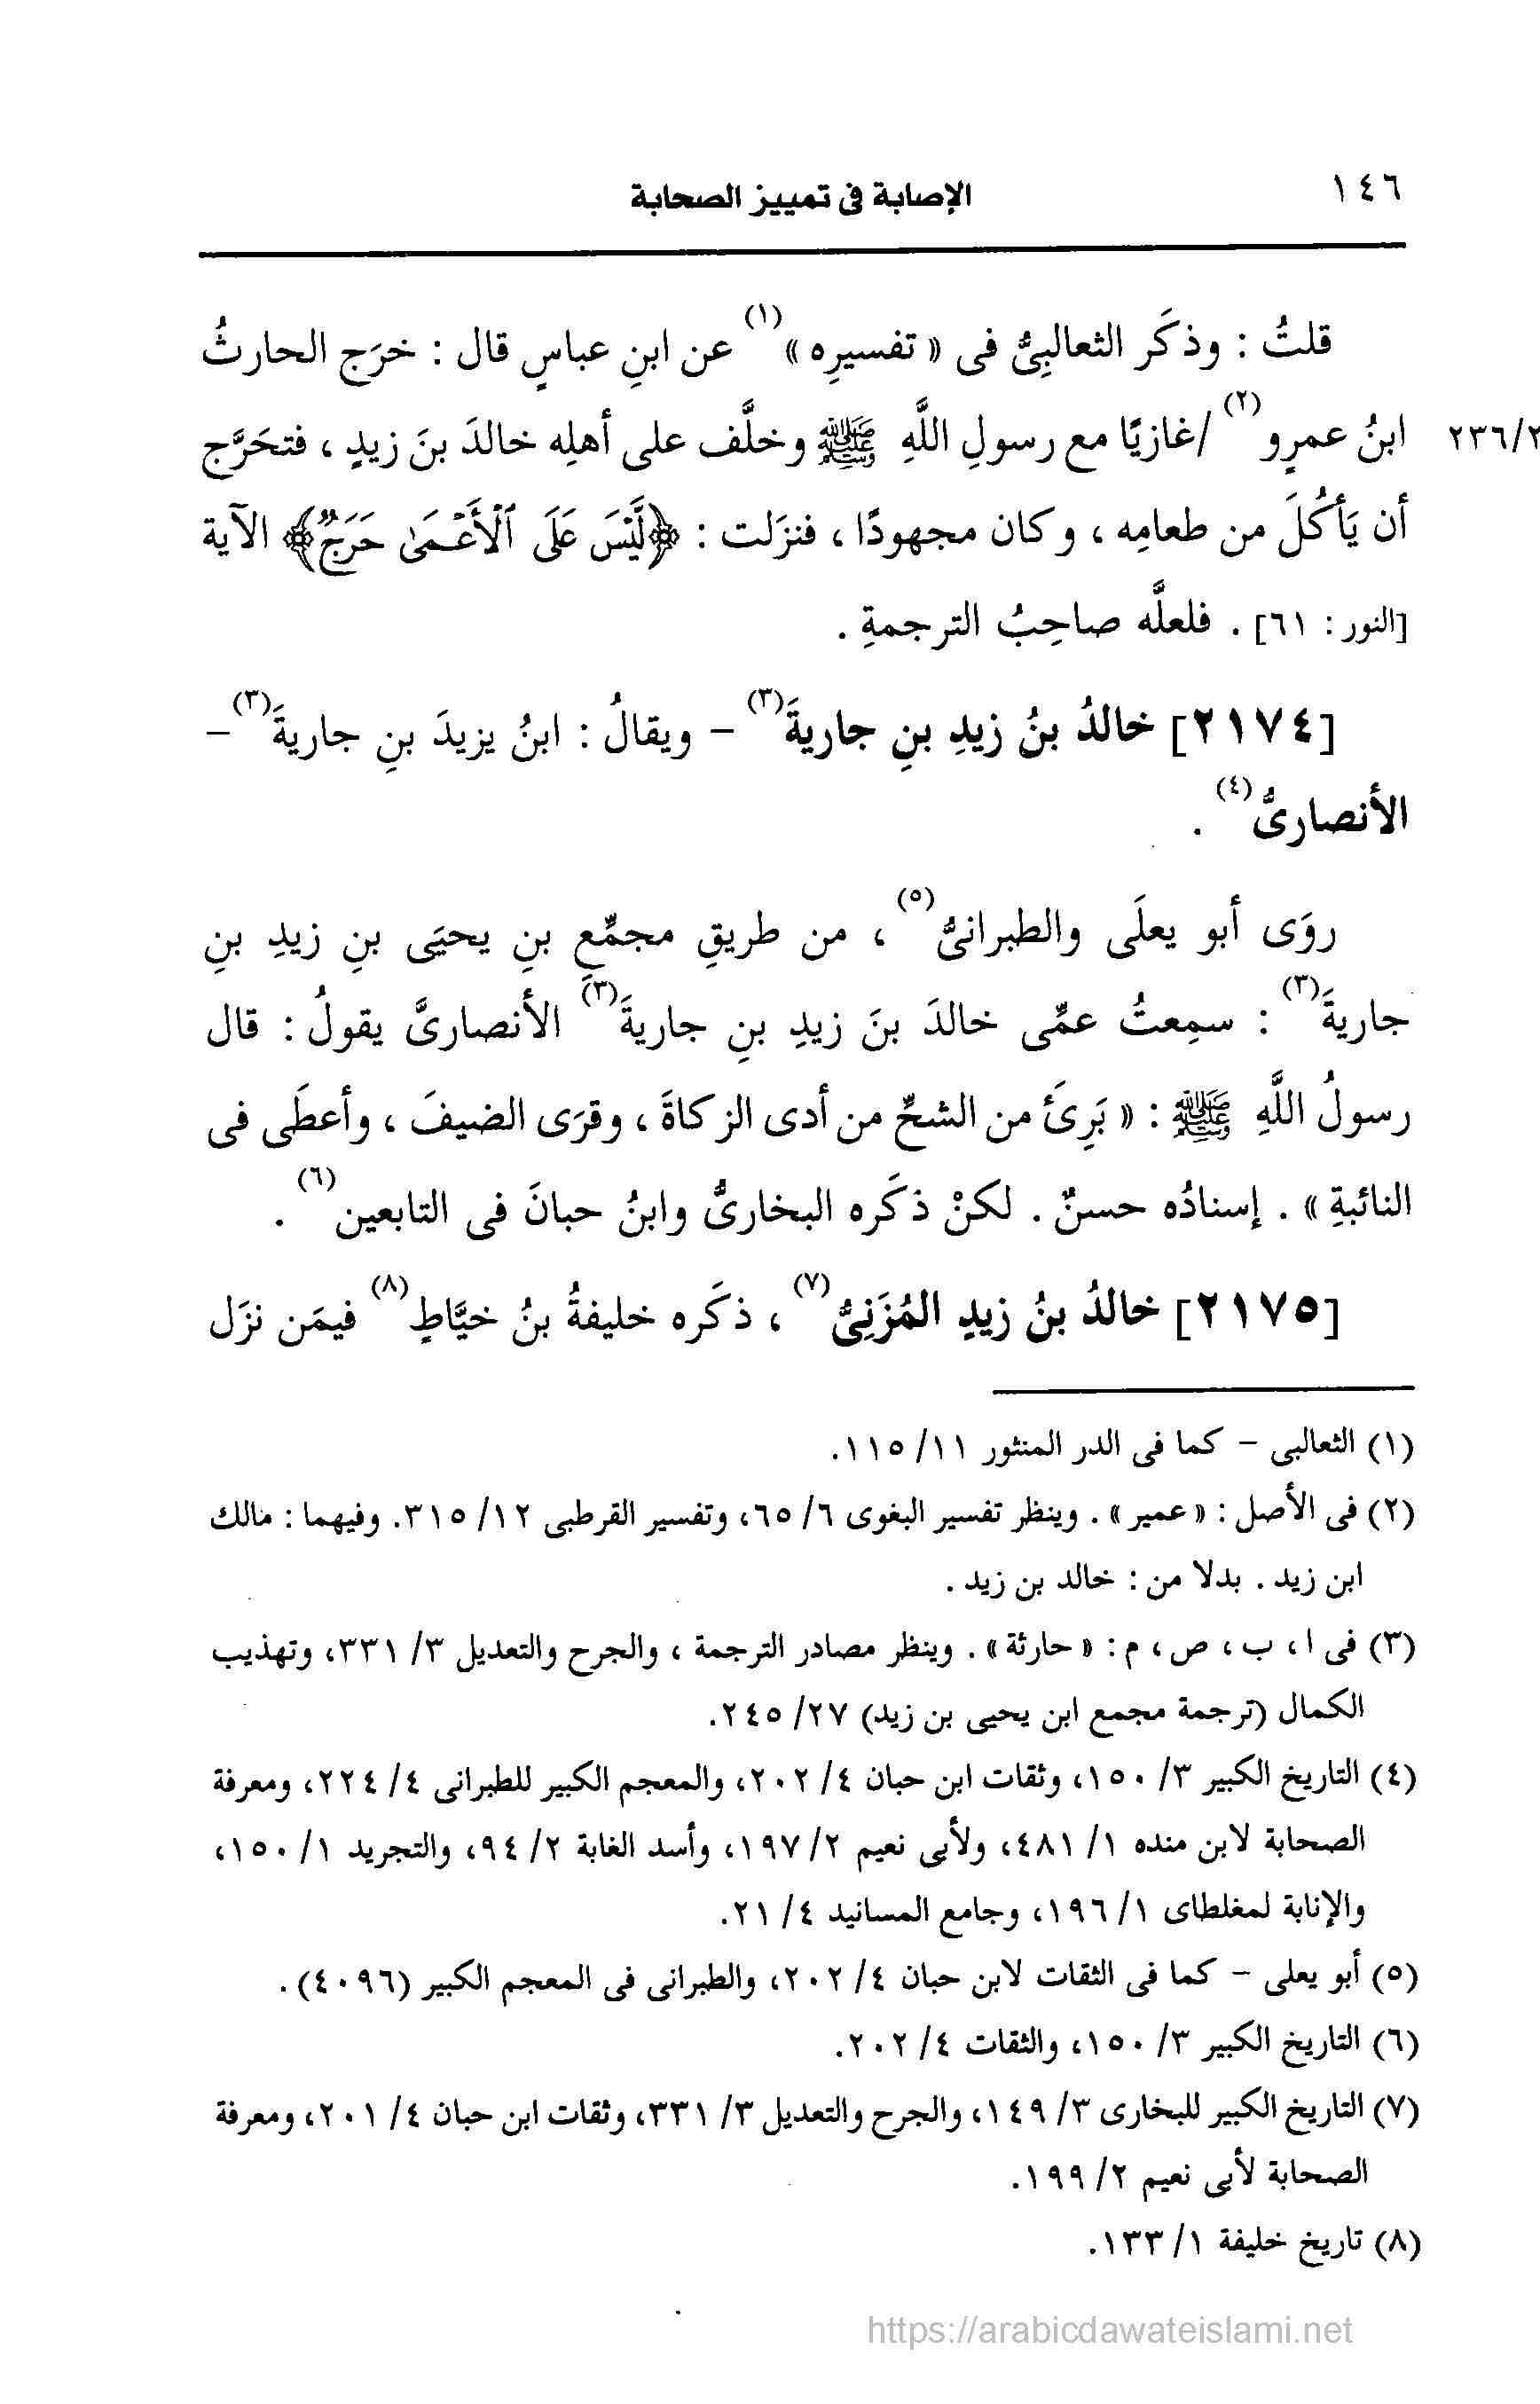 ١٤٦
الإصابة فى تمييز الصحابة
قلتُ : وذكَر الثعالبِىُّ فى « تفسيرِه »(١) عن ابنِ عباسٍ قال : خرَج الحارثُ
ابنُ عمرٍو(٢) /غازيًا مع رسولِ اللَّهِ ﷺ وخلَّف على أهلِه خالدَ بنَ زيدٍ ، فتحَرَّج
٢٣٦/٢
أن يَأكُلَ من طعامِه ، وكان مجهودًا ، فنزَلت : ﴿لَّيْسَ عَلَى ٱلْأَعْمَىٰ حَرَجٌ﴾ الآية
[النور : ٦١] . فلعلَّه صاحِبُ الترجمةِ .
[٢١٧٤] خالدُ بنُ زيدِ بنِ جاريةَ(٣) – ويقالُ : ابنُ يزيدَ بنِ جاريةَ(٣) –
الأنصارىُّ(٤) .
روَى أبو يعلَى والطبرانىُّ(٥) ، من طريقِ مجمِّعِ بنِ يحيَى بنِ زيدِ بنِ
جاريةَ(٣) : سمِعتُ عمِّى خالدَ بنَ زيدِ بنِ جاريةَ(٣) الأنصارىَّ يقولُ : قال
رسولُ اللَّهِ ﷺ : « بَرِئَ من الشحِّ من أدى الزكاةَ ، وقرَى الضيفَ ، وأعطَى فى
النائبةِ » . إسنادُه حسنٌ . لكنْ ذكَره البخارىُّ وابنُ حبانَ فى التابعين(٦) .
[٢١٧٥] خالدُ بنُ زيدٍ المُزَنِىُّ(٧) ، ذكَره خليفةُ بنُ خيَّاطٍ(٨) فيمَن نزَل
(١) الثعالبى – كما فى الدر المنثور ١١/ ١١٥.
(٢) فى الأصل : « عمير » . وينظر تفسير البغوى ٦/ ٦٥، وتفسير القرطبى ١٢/ ٣١٥. وفيهما : مالك
ابن زيد . بدلا من : خالد بن زيد .
(٣) فى ا ، ب ، ص ، م : « حارثة » . وينظر مصادر الترجمة ، والجرح والتعديل ٣/ ٣٣١، وتهذيب
الكمال (ترجمة مجمع ابن يحيى بن زيد) ٢٧/ ٢٤٥.
(٤) التاريخ الكبير ٣/ ١٥٠، وثقات ابن حبان ٤/ ٢٠٢، والمعجم الكبير للطبرانى ٤/ ٢٢٤، ومعرفة
الصحابة لابن منده ١/ ٤٨١، ولأبى نعيم ٢/ ١٩٧، وأسد الغابة ٢/ ٩٤، والتجريد ١/ ١٥٠،
والإنابة لمغلطاى ١/ ١٩٦، وجامع المسانيد ٤/ ٢١.
(٥) أبو يعلى – كما فى الثقات لابن حبان ٤/ ٢٠٢، والطبرانى فى المعجم الكبير (٤٠٩٦) .
(٦) التاريخ الكبير ٣/ ١٥٠، والثقات ٤/ ٢٠٢.
(٧) التاريخ الكبير للبخارى ٣/ ١٤٩، والجرح والتعديل ٣/ ٣٣١، وثقات ابن حبان ٤/ ٢٠١، ومعرفة
الصحابة لأبى نعيم ٢/ ١٩٩.
(٨) تاريخ خليفة ١/ ١٣٣.
https://arabicdawateislami.net